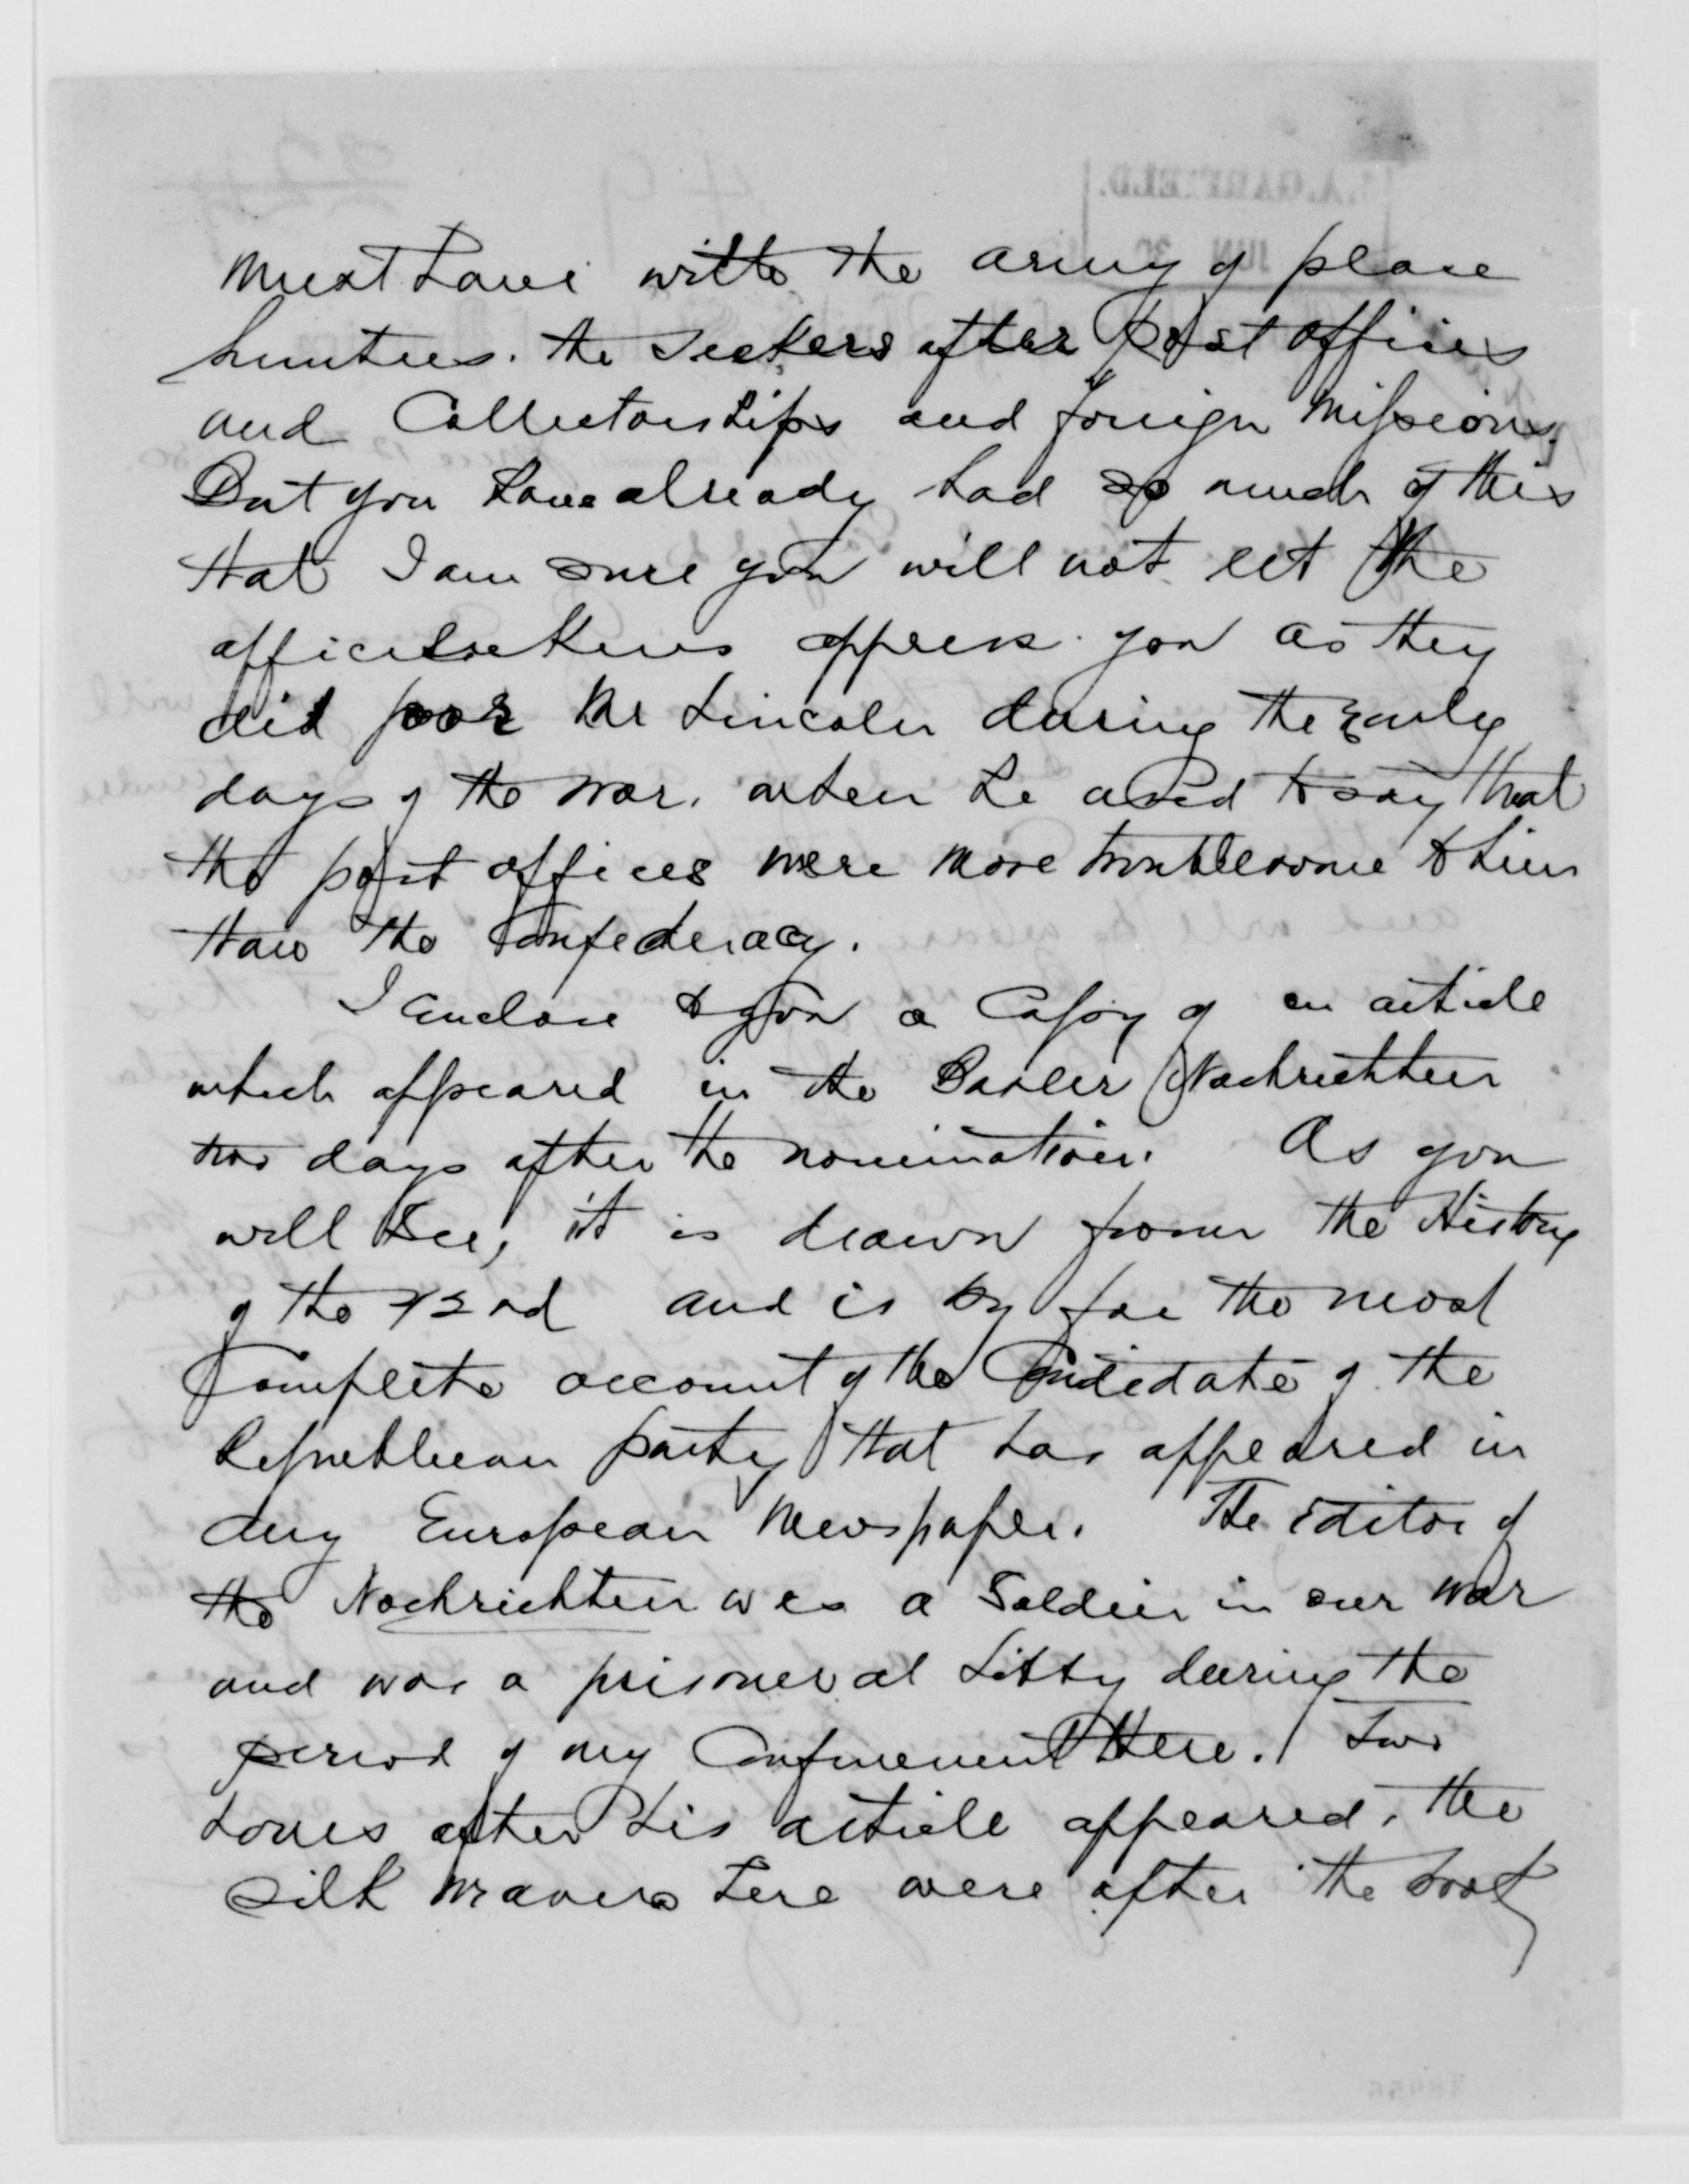 must have with the army of place
hunters. the seekers after post offices
and Collectorships and foreign missions.
But you have already had so much of this
that I am sure you will not let the
officeseekers oppress you as they
did poor Mr Lincoln during the Early
days of the war, when he used to say that
the post offices were more troublesome to him
than the Confederacy.
I enclose to you a Copy of an article
which appeared in the Basler Nachrichten
two days after the nomination. As you
will see, it is drawn from the History
of the 42nd and is by far the most
Complete account of the Candidate of the
Republican party that has appeared in
any European Newspaper. The Editor of
the Nachrichten was a Soldier in our war
and was a prisoner at Libby during the
period of my Confinement there. Two
hours after his article appeared, the
silk weavers here were after the